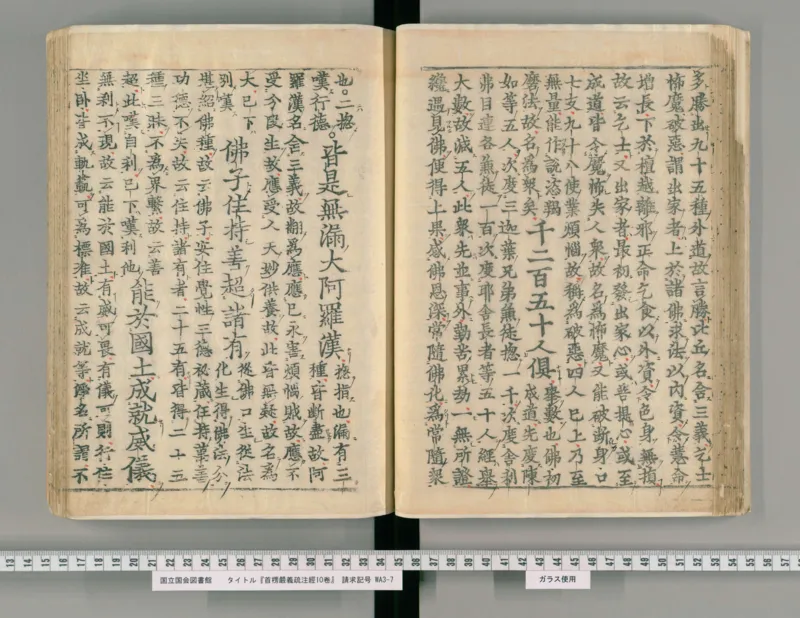 多勝出九十五種外道故言勝比丘名含三義乞士
怖魔破惡謂出家者上於諸佛求法以內資令慧命
增長下於檀越離邪正命乞食以外資令色身無損
故云乞士又出家者最初發出家心或菩提心或至
成道皆令魔怖失人衆故名為怖魔又能破斷身口
七支九十八使業煩惱故稱為破惡四人已上乃至
無量能作說恣羯
磨法故名為衆矣
千二百五十人俱
舉數也佛初
成道先度陳
如等五人次度三迦葉兄弟兼徒摠一千次度舍利
弗目連各兼徒一百次度耶舍長者等五十人經舉
大數故減五人此衆先並事外勤苦累劫一無所證
纔遇見佛便得上果感佛恩深常隨佛化為常隨衆
也。二摠
嘆行德。
皆是無漏大阿羅漢
摠指也漏有三
種皆斷盡故阿
羅漢名含三義故翻為應應已永害煩惱賊故應不
受生故應受人天妙供養故此皆無疑故名為
大已下
列嘆
佛子住持善超諸有
從佛口生從法
化生得佛法分
堪紹佛種故云佛子安住覺性三德秘藏任持萬善
功德不失故云住持諸有者二十五有皆得二十五
種三昧不為界繫故云善
超此嘆自利已下嘆利他
能於國土成就威儀
無刹不現故云能於國土有威可畏有儀可則行住
坐卧皆成軌可為標准故云成就等淨名所謂不
国立国会図書館 タイトル『首楞嚴義疏注經10巻』 請求記号 WA3-7
ガラス使用
13 14 15 16 17 18 19 20 21 22 23 24 25 26 27 28 29 30 31 32 33 34 35 36 37 38 39 40 41 42 43 44 45 46 47 48 49 50 51 52 53 54 55 56 57